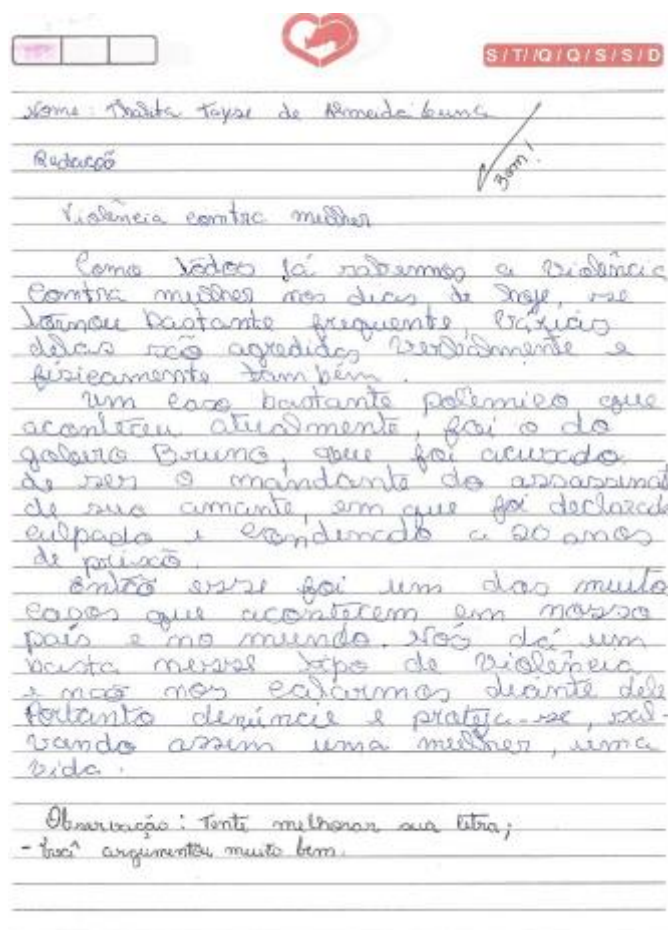 S/T/Q/Q/S/S/D
Nome: Thalita Tayse de Almeida
Redação
Bom!
Violência contra mulher
Como todos já sabemos a violência
contra mulher nos dias de hoje, se
tornou bastante frequente, várias
delas são agredidas verbalmente e
fisicamente também.
Um caso bastante polêmico que
aconteceu atualmente, foi o do
goleiro Bruno, que foi acusado
de ser o mandante do assassinat
de sua amante, em que foi declarado
culpado e condenado a 20 anos
de prisão.
Então esse foi um dos muito
casos que acontecem em nosso
país e no mundo. Nós dá um
basta nesse tipo de violência
e não nos calarmos diante dela
Portanto denúncie e proteja-se, sal-
vando assim uma mulher, uma
vida.
Observação: Tente melhorar sua letra;
- Você argumentou muito bem.